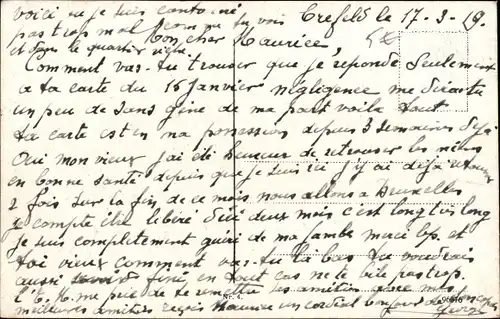 voici ou je suis cantonné
pas trop mal comme tu vois Crefeld le 17-3-19.
et dans le quartier riche. Mon cher Maurice,
Comment vas-tu trouver que je réponde seulement
a ta carte du 15 Janvier négligence me diras tu
un peu de sans gêne de ma part voila tout
ta carte est en ma possession depuis 3 semaines déjà
Oui mon vieux j'ai été heureux de retrouver les
en bonne santé depuis que je suis ici j'y ai déjà
2 fois sur la fin de ce mois nous allons a Bruxelles
je compte être libéré d'ici deux mois c'est long très long
je suis complètement guéri de ma jambe merci bp. et
toi vieux comment vas-tu là bas tu voudrais
aussi fini, en tout cas ne te bile pas trop.
me prie de te remettre ses amitiés
meilleures amitiés reçois Maurice un cordial bonjour de
George
Nr. 4.